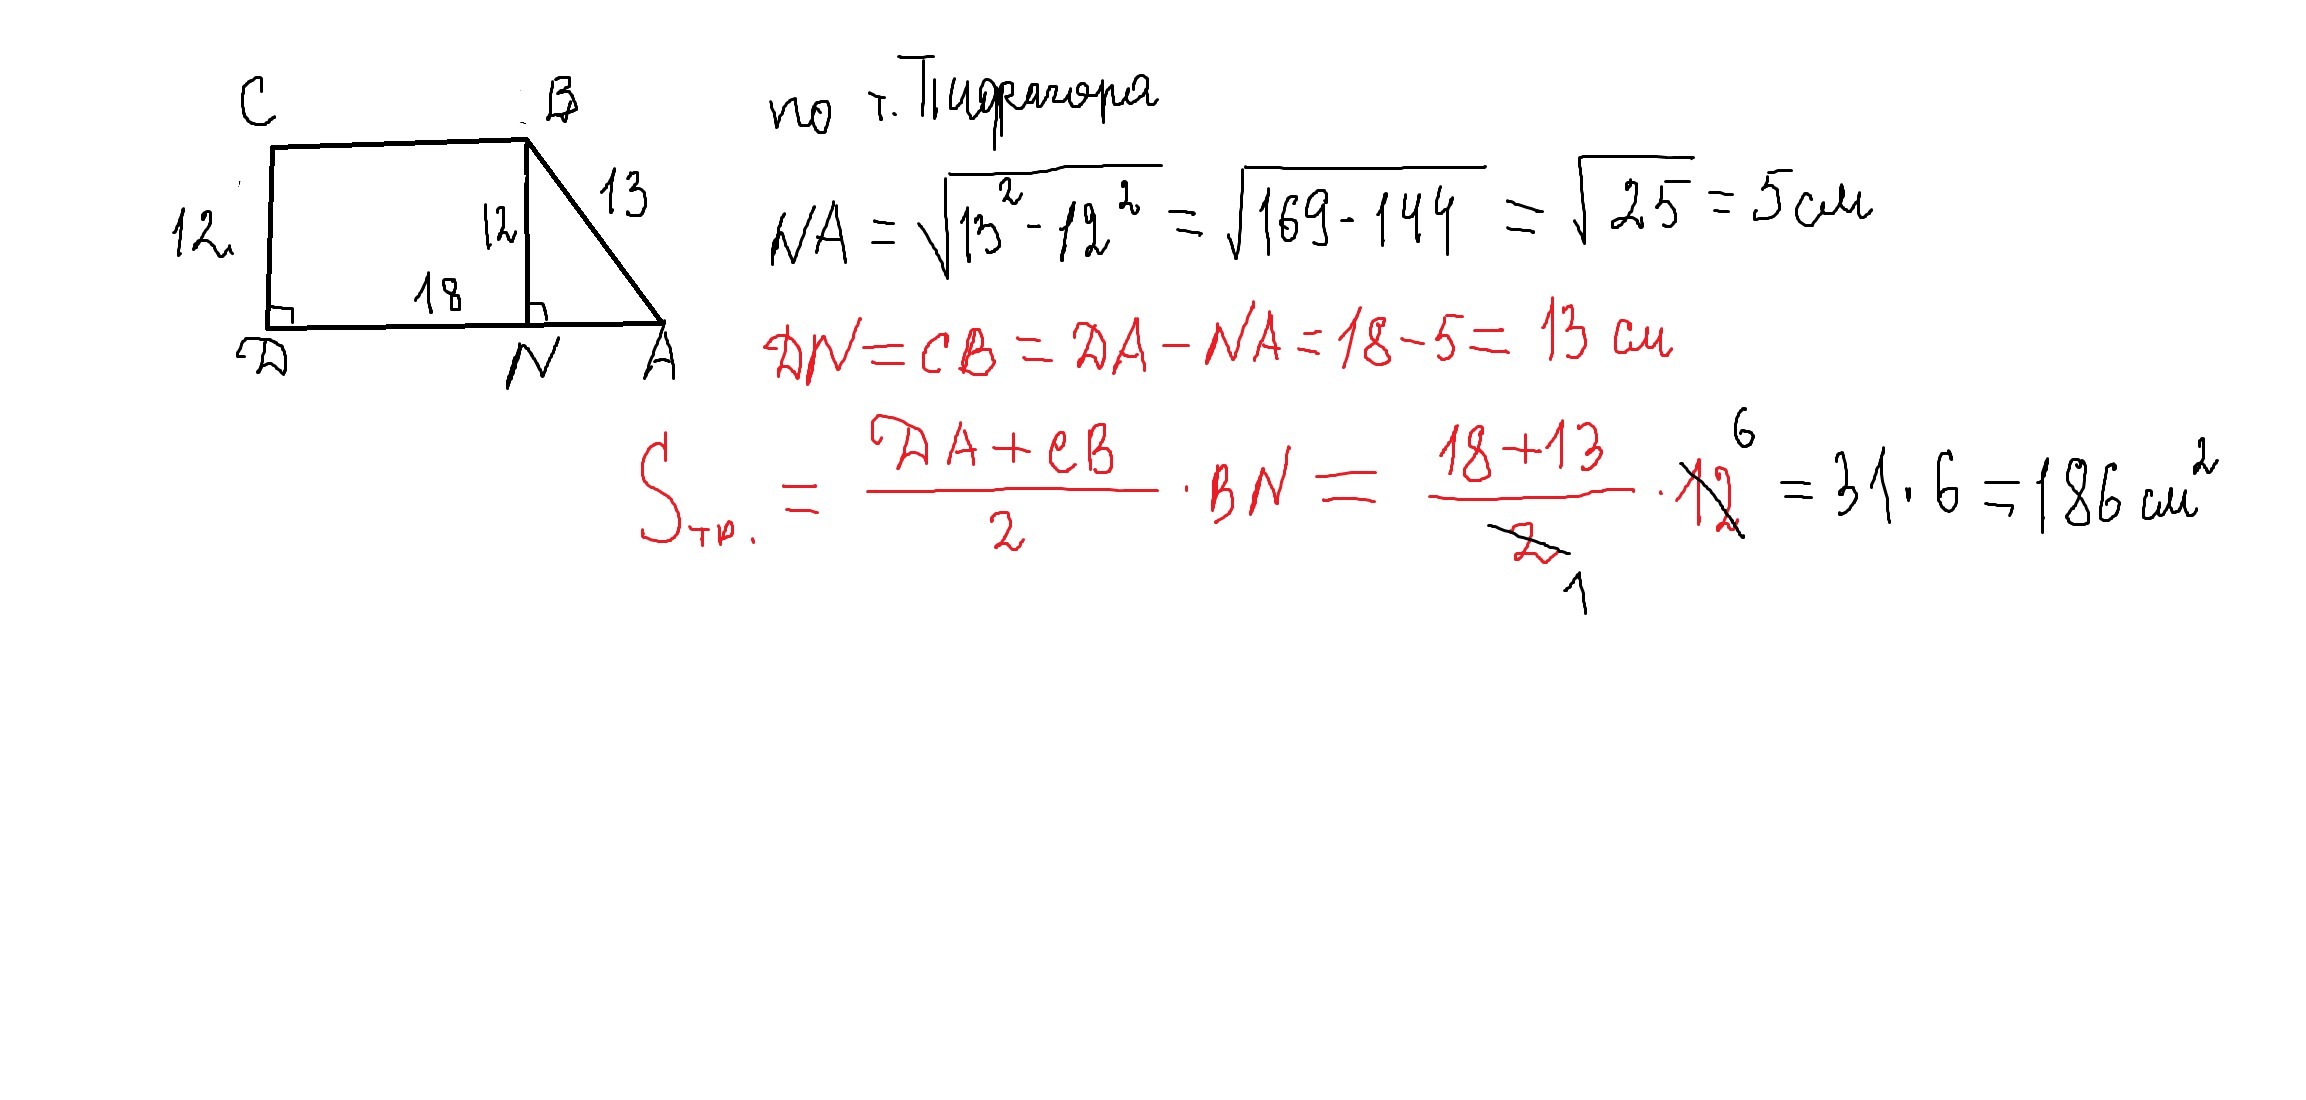 C B
12 12 13
18
D N A
по т. Пифагора
NA = √13² - 12² = √169 - 144 = √25 = 5 см
DN = CB = DA - NA = 18 - 5 = 13 см
Sтр. = (DA + CB)/2 · BN = (18 + 13)/2 · 12 = 31 · 6 = 186 см²
6
1